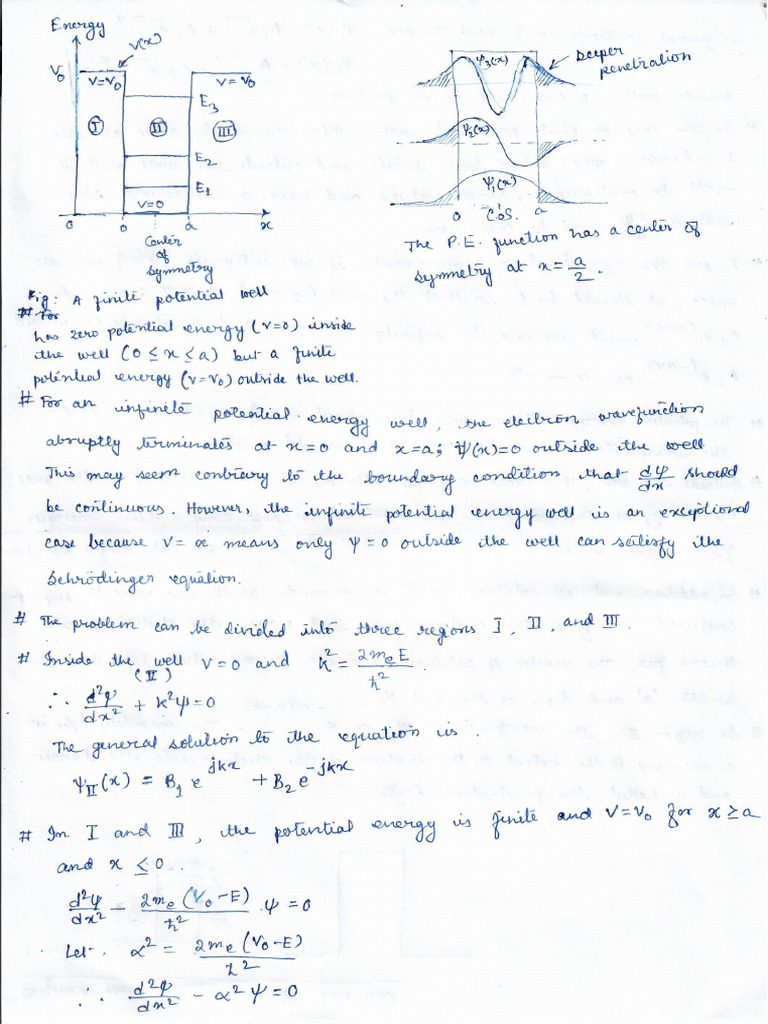 Energy
V(x)
V₀
V=V₀
V=V₀
I
II
III
E₃
E₂
E₁
V=0
0
0
a
x
Center
of
Symmetry
ψ₃(x)
Deeper
penetration
ψ₂(x)
ψ₁(x)
0
C.o.S.
a
The P.E. function has a center of
symmetry at x = a/2.
Fig: A finite potential well
# For
has zero potential energy (V=0) inside
the well (0 ≤ x ≤ a) but a finite
potential energy (V=V₀) outside the well.
# For an infinite potential energy well, the electron wavefunction
abruptly terminates at x=0 and x=a; ψ(x)=0 outside the well
This may seem contrary to the boundary condition that dψ/dx should
be continuous. However, the infinite potential energy well is an exceptional
case because V = ∝ means only ψ = 0 outside the well can satisfy the
Schrödinger equation.
# The problem can be divided into three regions I, II, and III.
# Inside the well V=0 and k² = 2mₑE/ħ².
(II)
∴ d²ψ/dx² + k²ψ = 0
The general solution to the equation is.
ψ_II(x) = B₁ e^{jkx} + B₂ e^{-jkx}
# In I and III, the potential energy is finite and V=V₀ for x ≥ a
and x ≤ 0.
d²ψ/dx² - 2mₑ(V₀-E)/ħ² .ψ = 0
Let. α² = 2mₑ(V₀-E)/ħ²
∴ d²ψ/dx² - α²ψ = 0